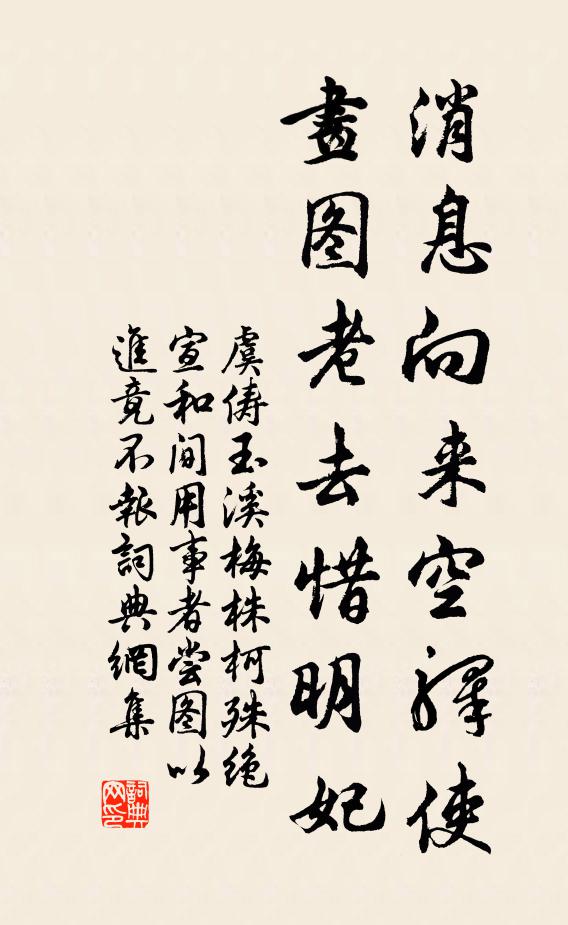 消息向来空驿使
畫图老去惜明妃
虞俦玉溪梅株柯殊绝
宣和间用事者尝图以
進竟不報詞典網集
詞典网印